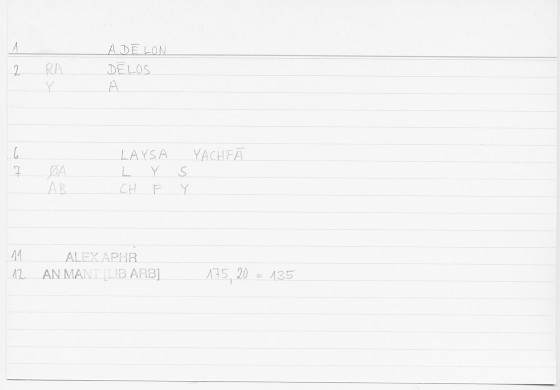 1 ADĒLON
2 RA DĒLOS
Y A
6 LAYSA YACHFĀ
7 ØA L Y S
AB CH F Y
11 ALEX APHR
12 AN MANT [LIB ARB] 175, 20 = 135